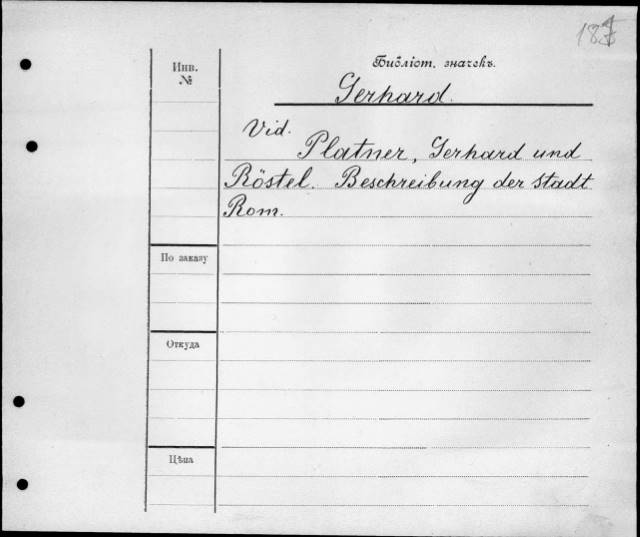 Библіот. значекъ.
Инв.
№
Gerhard.
Vid.
Platner, Gerhard und
Röstel. Beschreibung der Stadt
Rom.
По заказу
Откуда
Цѣна